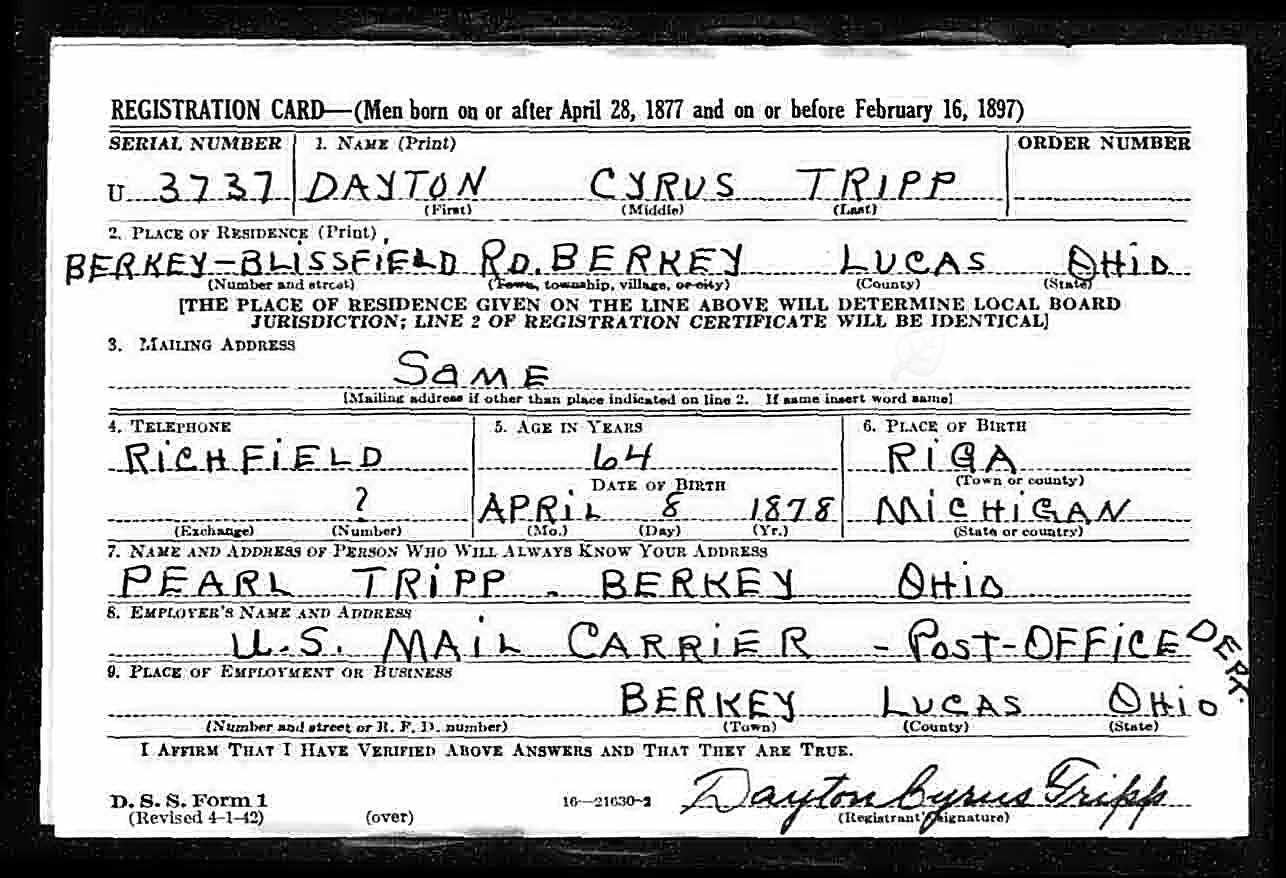 REGISTRATION CARD—(Men born on or after April 28, 1877 and on or before February 16, 1897)
SERIAL NUMBER 1. NAME (Print) ORDER NUMBER
U 3737 DAYTON CYRUS TRIPP
(First) (Middle) (Last)
2. PLACE OF RESIDENCE (Print)
BERKEY-BLISSFIELD RD. BERKEY LUCAS OHIO
(Number and street) (Town, township, village, or city) (County) (State)
[THE PLACE OF RESIDENCE GIVEN ON THE LINE ABOVE WILL DETERMINE LOCAL BOARD
JURISDICTION; LINE 2 OF REGISTRATION CERTIFICATE WILL BE IDENTICAL]
3. MAILING ADDRESS
SAME
[Mailing address if other than place indicated on line 2. If same insert word same]
4. TELEPHONE 5. AGE IN YEARS 6. PLACE OF BIRTH
RICHFIELD 64 RIGA
DATE OF BIRTH (Town or county)
? APRIL 8 1878 MICHIGAN
(Exchange) (Number) (Mo.) (Day) (Yr.) (State or country)
7. NAME AND ADDRESS OF PERSON WHO WILL ALWAYS KNOW YOUR ADDRESS
PEARL TRIPP - BERKEY OHIO
8. EMPLOYER'S NAME AND ADDRESS
U.S. MAIL CARRIER - POST-OFFICE DEPT.
9. PLACE OF EMPLOYMENT OR BUSINESS
BERKEY LUCAS OHIO
(Number and street or R. F. D. number) (Town) (County) (State)
I AFFIRM THAT I HAVE VERIFIED ABOVE ANSWERS AND THAT THEY ARE TRUE.
Dayton Cyrus Tripp
D. S. S. Form 1 16—21630-2 (Registrant's signature)
(Revised 4-1-42) (over)